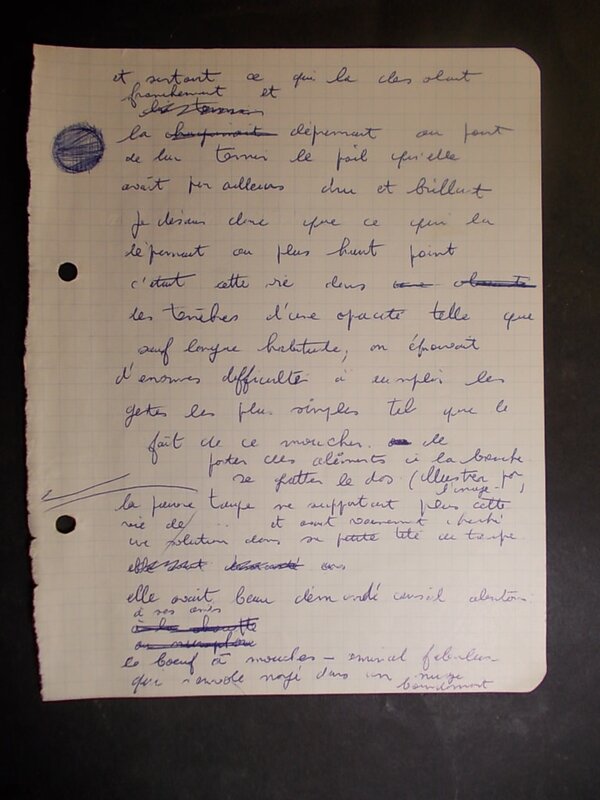 et surtout ce qui la désolait
franchement et
la déprimait au point
de lui ternir le poil qu'elle
avait par ailleurs dru et brillant
Je disais donc que ce qui la
déprimait au plus haut point
c'était cette vie dans
les ténèbres d'une opacité telle que
sauf longue habitude, on éprouvait
d'énormes difficultés à accomplir les
gestes les plus simples tel que le
fait de se moucher de
porter des aliments à la bouche
se gratter le dos (illustrer par
l'image)
la pauvre taupe ne supportait plus cette
vie de ... et avait vainement cherché
une solution dans sa petite tête de taupe
elle avait beau demandé conseil alentour
à ses amis
le boeuf à mouches – animal fabuleux
que s'envole noyé dans un nuage
bourdonnant